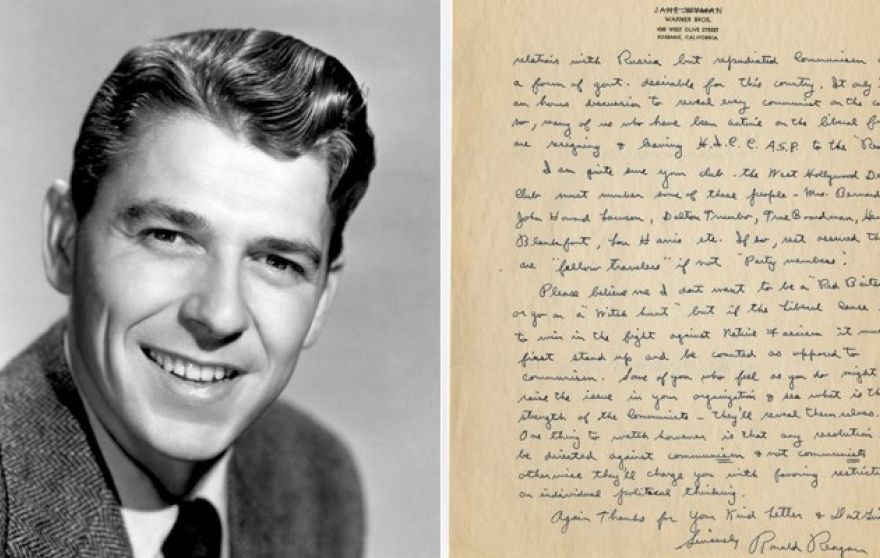 JANE WYMAN
WARNER BROS.
WEST OLIVE STREET
BURBANK, CALIFORNIA
relations with Russia but repudiated Communism
a form of govt. desirable for this country. It only
an hours discussion to reveal every communist on the
so, many of us who have been active on the liberal
are resigning & leaving H.I.C.C.A.S.P. to the "Re
I am quite sure your club - the West Hollywood De
Club must number some of these people - Mrs. Bernard
John Howard Lawson, Dalton Trumbo, True Boardman, He
Blankfort, Lou Harris etc. If so, rest assured th
are "fellow travelers" if not "Party members".
Please believe me I dont want to be a "Red Baite
or go on a "Witch hunt" but if the liberal cause
to win in the fight against Native Facism it mu
first stand up and be counted as opposed to
communism. Some of you who feel as you do might
raise the issue in your organization & see what is th
strength of the Communists - they'll reveal themselves.
One thing to watch however is that any resolution
be directed against communism & not communists
otherwise they'll charge you with favoring restricti
on individual political thinking.
Again Thanks for your Kind Letter &
Sincerely Ronald Reagan